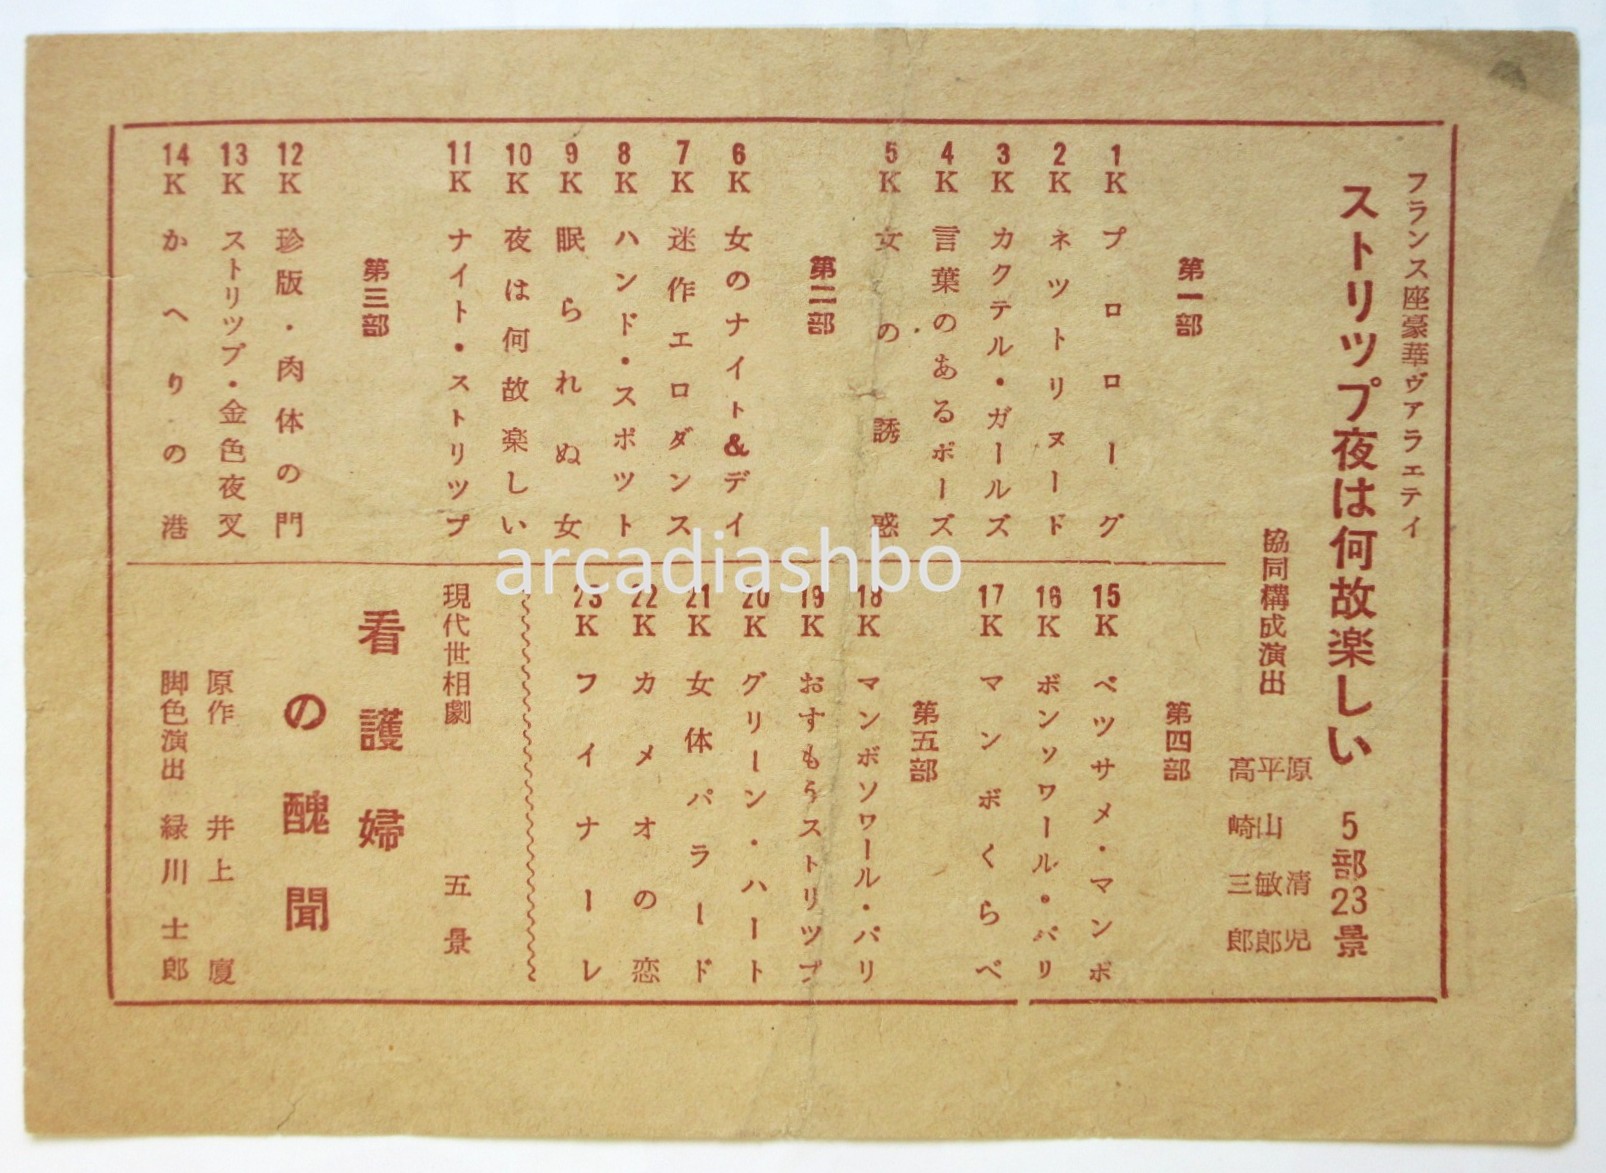 フランス座豪華ヴァラエテイ
ストリップ夜は何故楽しい 5部23景
協同構成演出
原清児
平山敏郎
高崎三郎
第一部
1K プロローグ
2K ネツトリヌード
3K カクテル・ガールズ
4K 言葉のあるポーズ
5K 女の誘惑
第二部
6K 女のナイト&デイ
7K 迷作エロダンス
8K ハンド・スポツト
9K 眠られぬ女
10K 夜は何故楽しい
11K ナイト・ストリツプ
第三部
12K 珍版・肉体の門
13K ストリツプ・金色夜叉
14K かへりの港
第四部
15K ベツサメ・マンボ
16K ボンソワール・パリ
17K マンボくらべ
第五部
18K マンボソワール・パリ
19K おすもうストリツプ
20K グリーン・ハート
21K 女体パラード
22K カメオの恋
23K フイナーレ
現代世相劇 五景
看護婦
の醜聞
原作 井上廈
脚色演出 緑川士郎
arcadiashbo